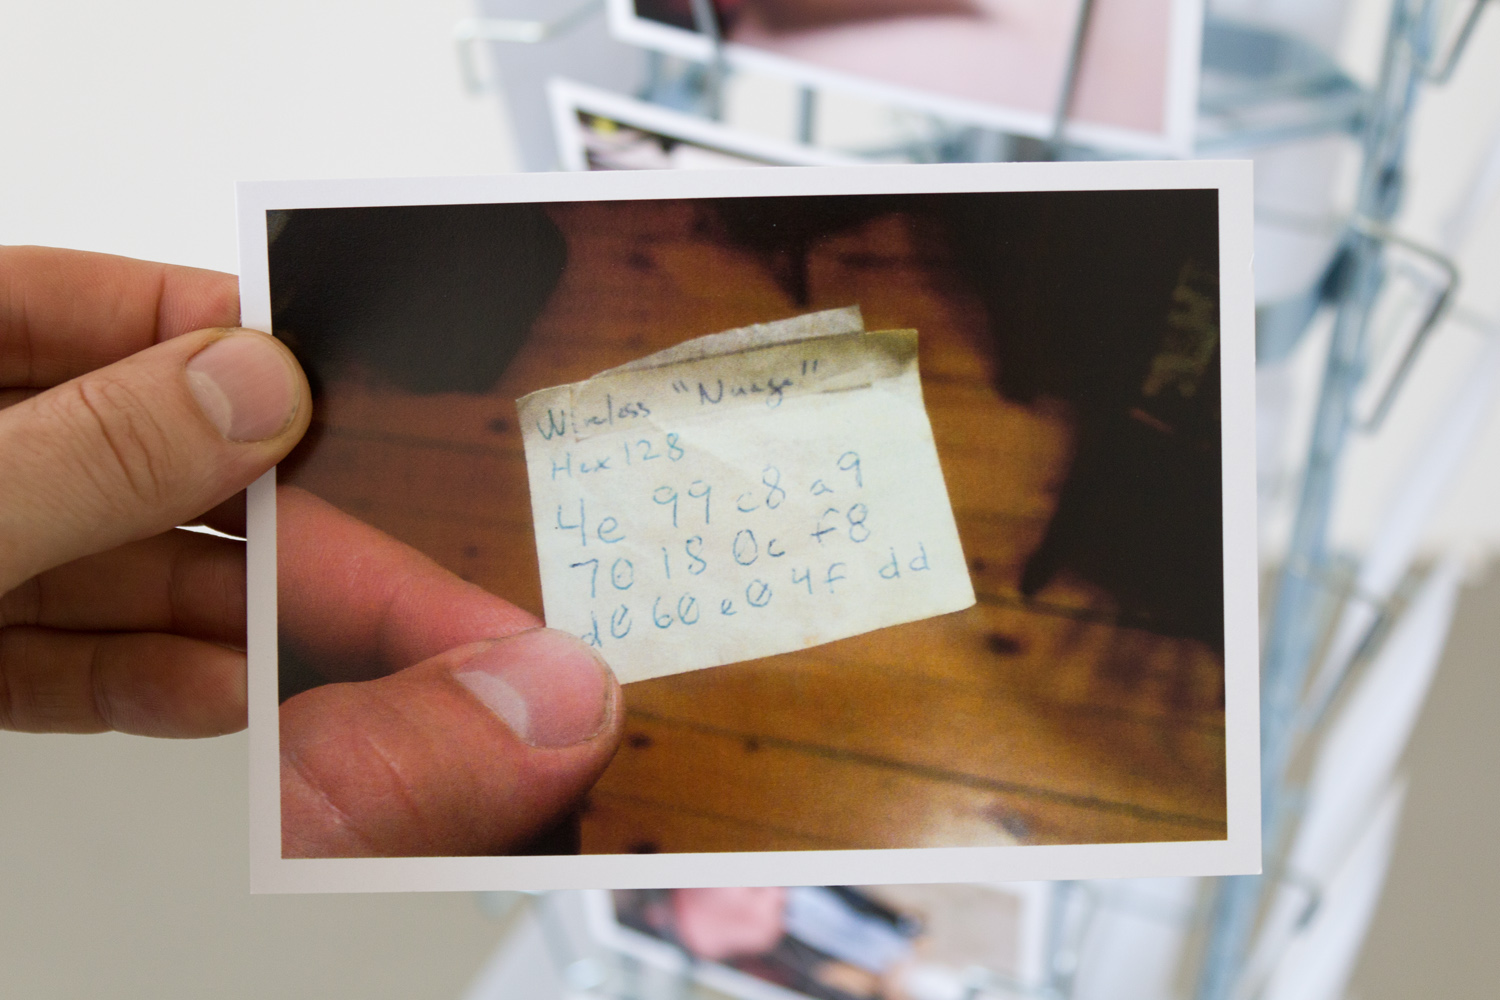 Wireless "Nuage"
Hex 128
4e 99 c8 a9
70 18 0c f8
d0 60 e0 4f dd